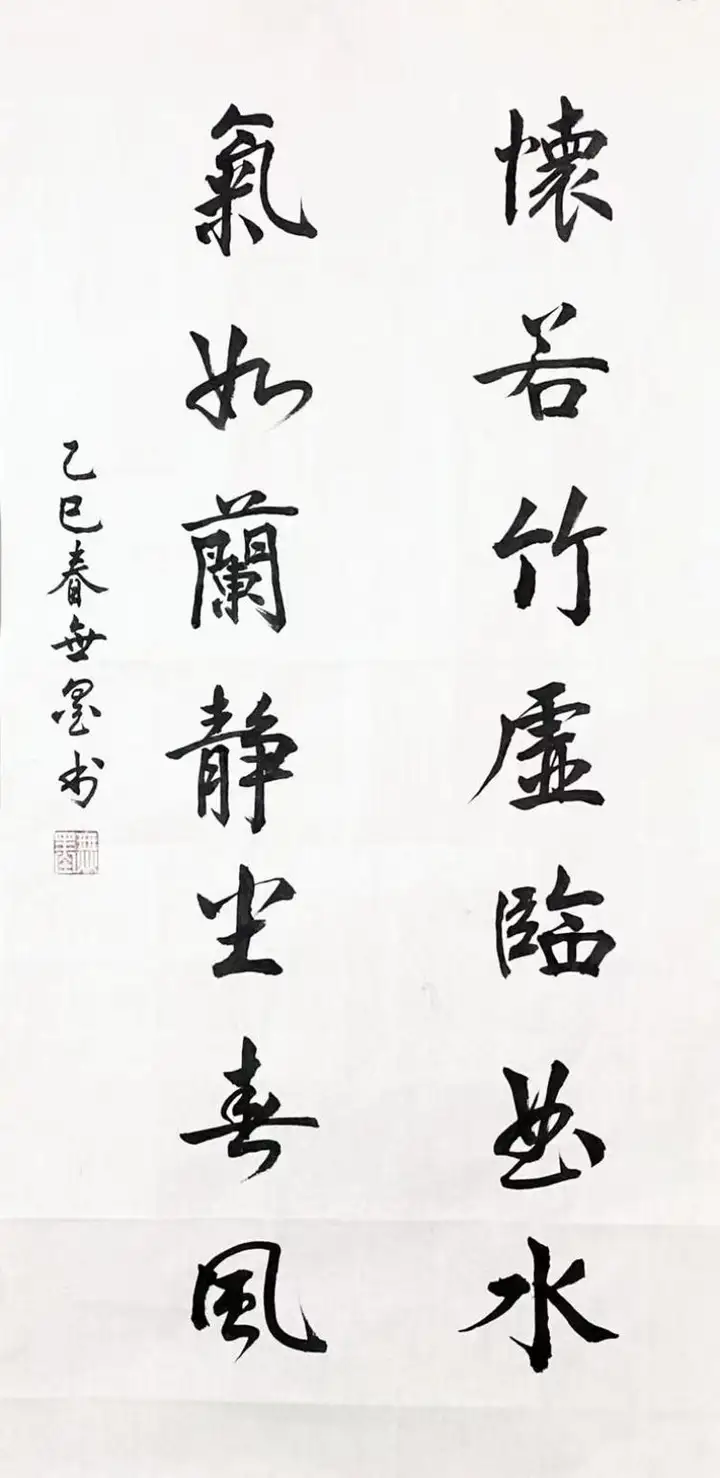 懷若竹虛臨曲水
氣如蘭靜坐春風
乙巳春無墨书
無墨